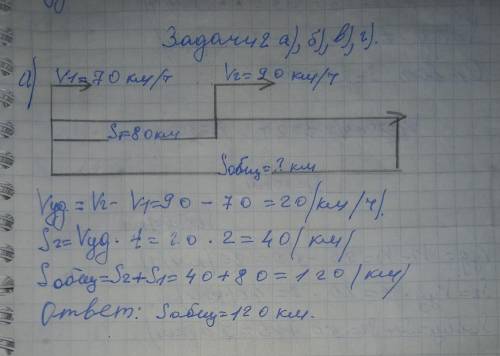 Задачи 2 а), б), в), г).
а) V1=70 км/ч V2=90 км/ч
S1=80 км
Sобщ=? км
Vуд=V2-V1=90-70=20(км/ч).
S2=Vуд·t=20·2=40(км)
Sобщ=S2+S1=40+80=120(км)
Ответ: Sобщ=120 км.